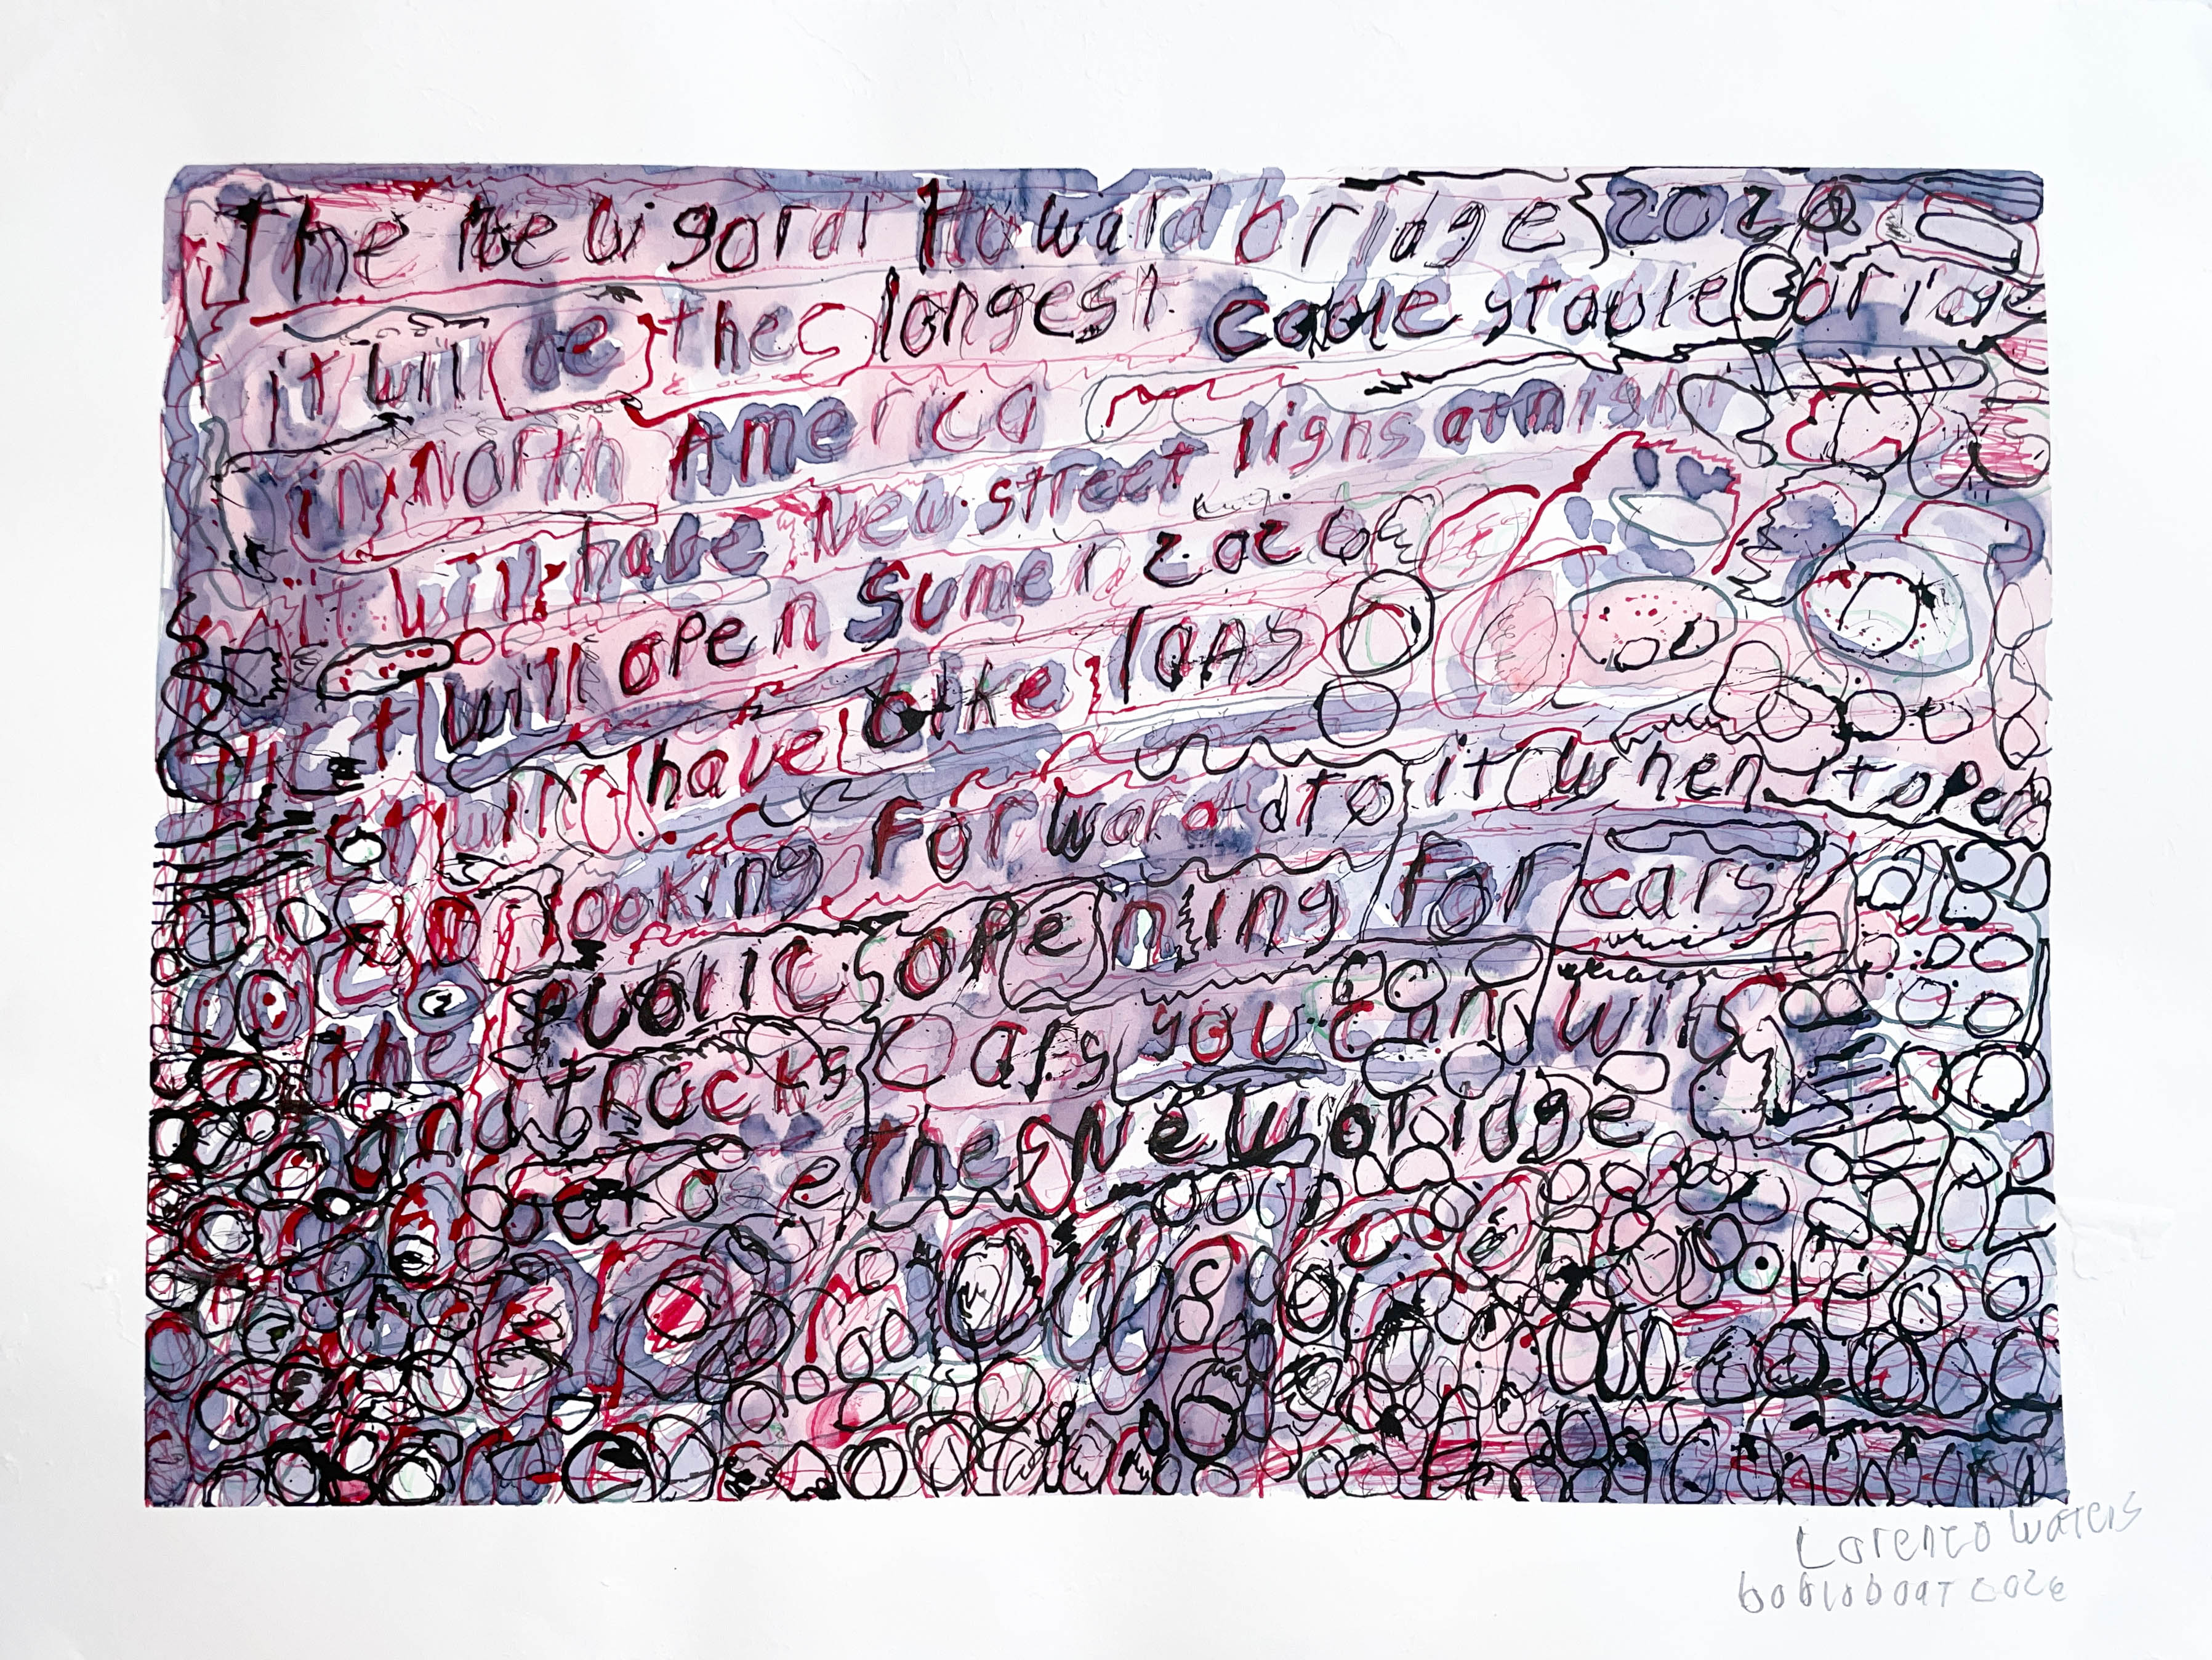 The new gordi Howard bridge 2026
it will be the longest cable stable bridge
in North America
it will have New street lighs at nigh
it will open sumer 2026
it will have bike lans
looking forward to it when it open
the public opening for cars
and trucks cars you can will
be the New bridge
Lorenzo Waters
boblo boat 2026